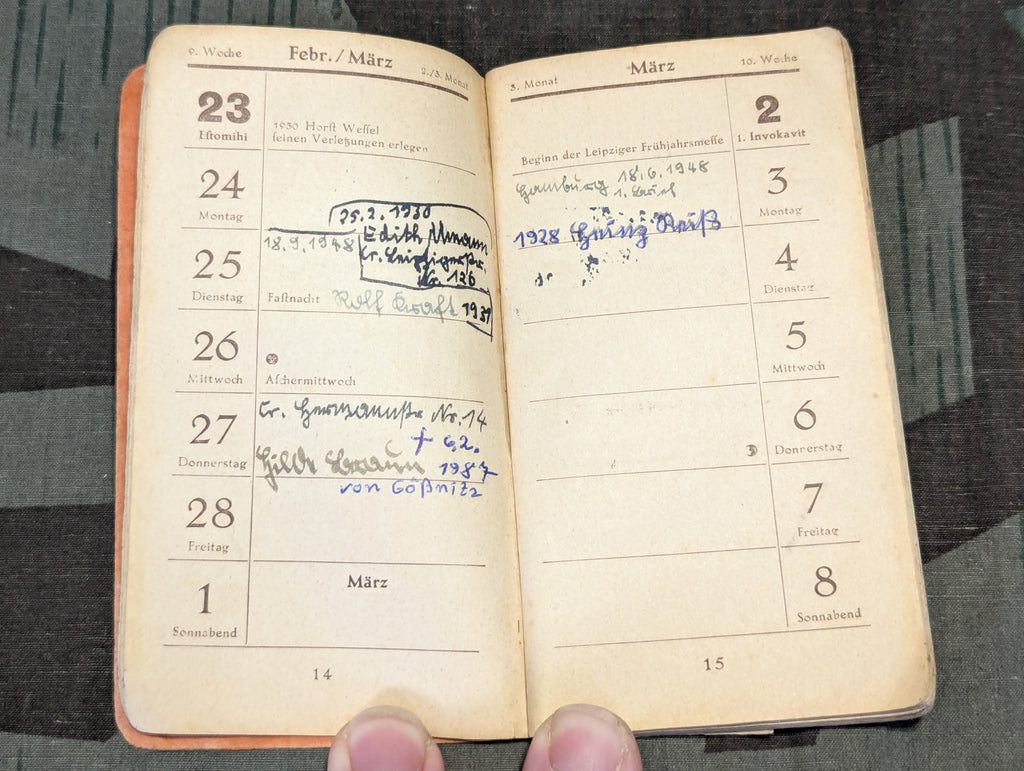 9. Woche
Febr./März
2./3. Monat
23
Eſtomihi
1930 Horſt Weſſel
ſeinen Verletzungen erlegen
24
Montag
25.2.1930
Edith
Cr. Leipzigerstr.
Nr. 126
18.9.1948
25
Dienstag
Faſtnacht
Rolf Kraft 1931
26
Mittwoch
Aſchermittwoch
27
Donnerstag
Cr. Hermannstr Nr. 14
+ 6.2.
Hilde Braun 1987
von Gößnitz
28
Freitag
März
1
Sonnabend
14
3. Monat
März
10. Woche
2
1. Invokavit
Beginn der Leipziger Frühjahrsmeſſe
3
Montag
Hamburg 18.6.1948
1. Brief
1928 Heinz Reiß
4
Dienstag
5
Mittwoch
6
Donnerstag
7
Freitag
8
Sonnabend
15